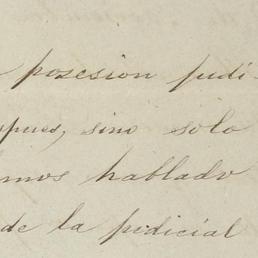 posesion judi-
spues, sino solo
mos hablado
de la judicial